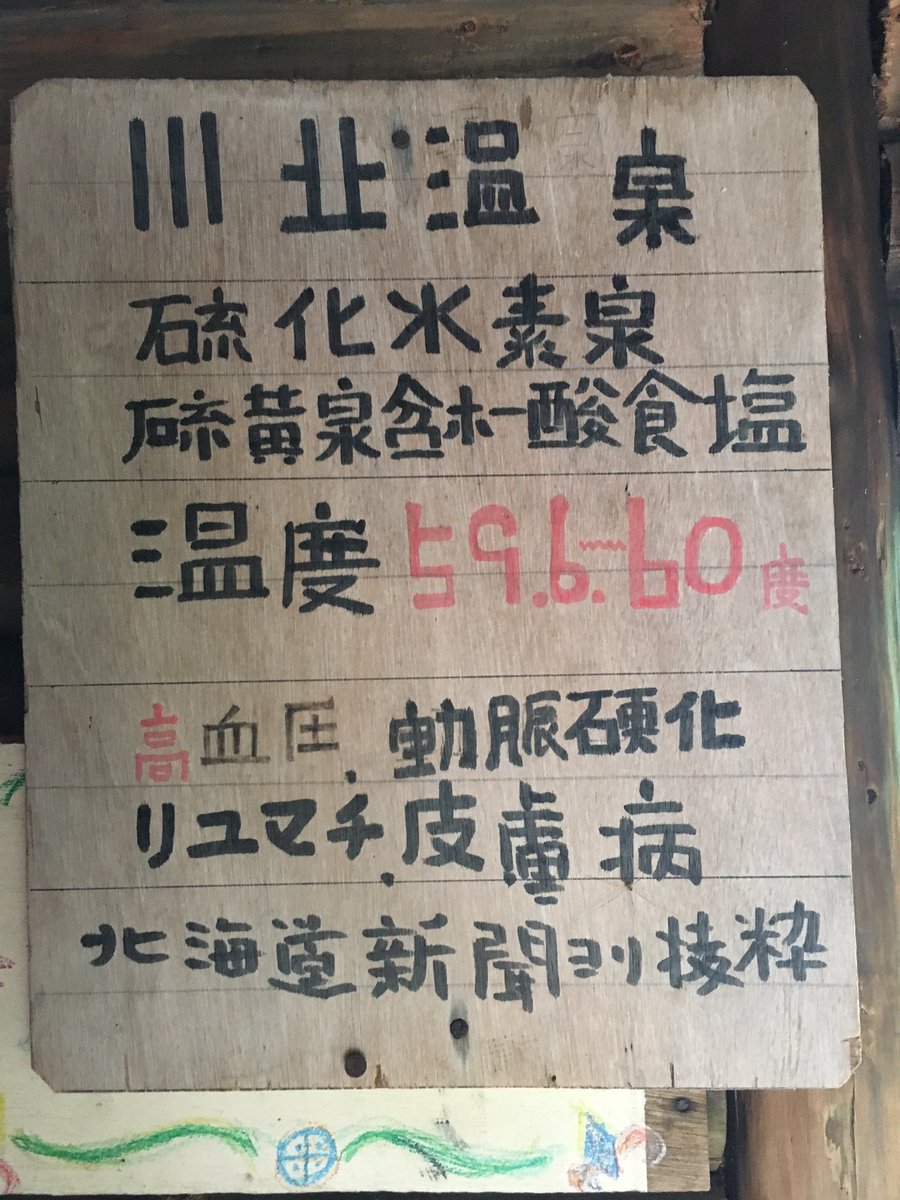 川北温泉
硫化水素泉
硫黄泉含ホー酸食塩
温度59.6.60度
高血圧.動脈硬化
リユマチ.皮膚病
北海道新聞ヨリ抜粋